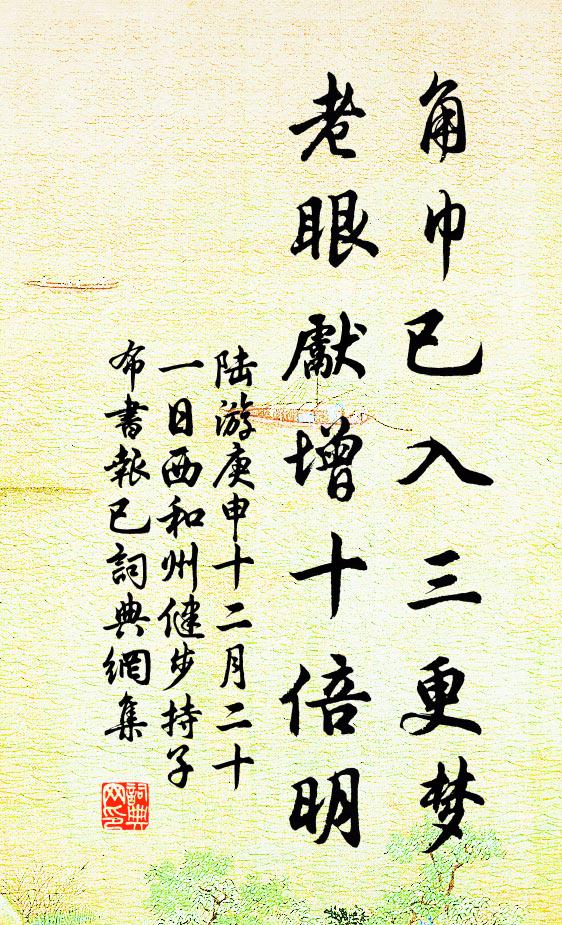 角巾已入三更梦
老眼獻增十倍明
陆游庚申十二月二十
一日西和州健步持子
布書報已詞典網集
詞典网印